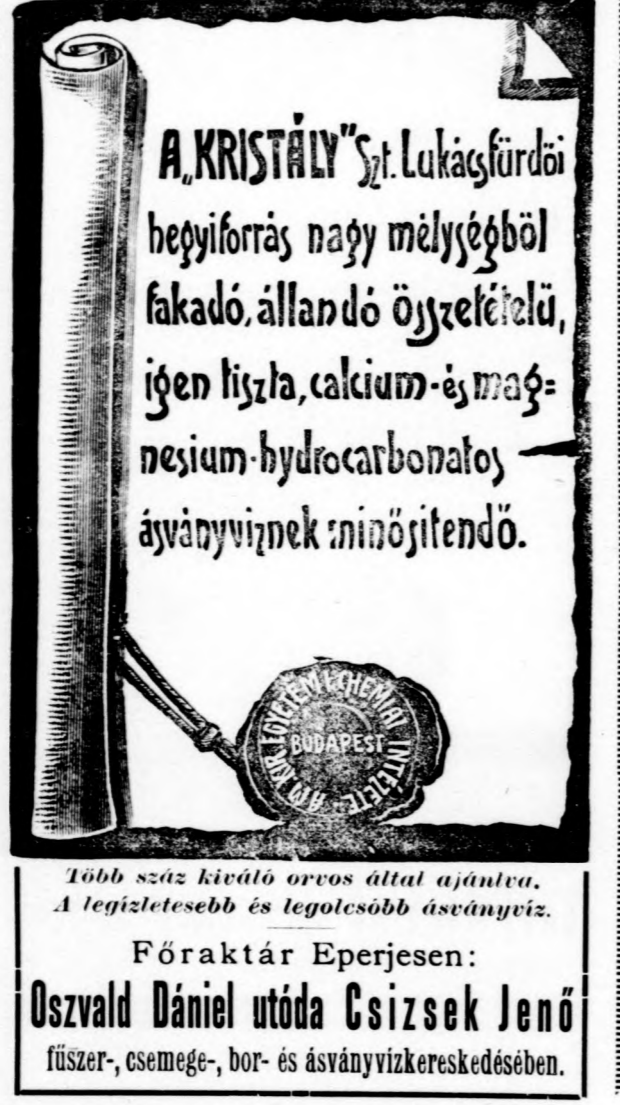 A „KRISTÁLY” Szt. Lukácsfürdői
hegyiforrás nagy mélységből
fakadó, állandó összetételű,
igen tiszta, calcium- és mag=
nesium-hydrocarbonatos
ásványviznek minősitendő.
A M. KIR. EGYETEM I. CHEMIAI INTÉZETE
BUDAPEST
Több száz kiváló orvos által ajánlva.
A legízletesebb és legolcsóbb ásványvíz.
Főraktár Eperjesen:
Oszvald Dániel utóda Csizsek Jenő
fűszer-, csemege-, bor- és ásványvízkereskedésében.